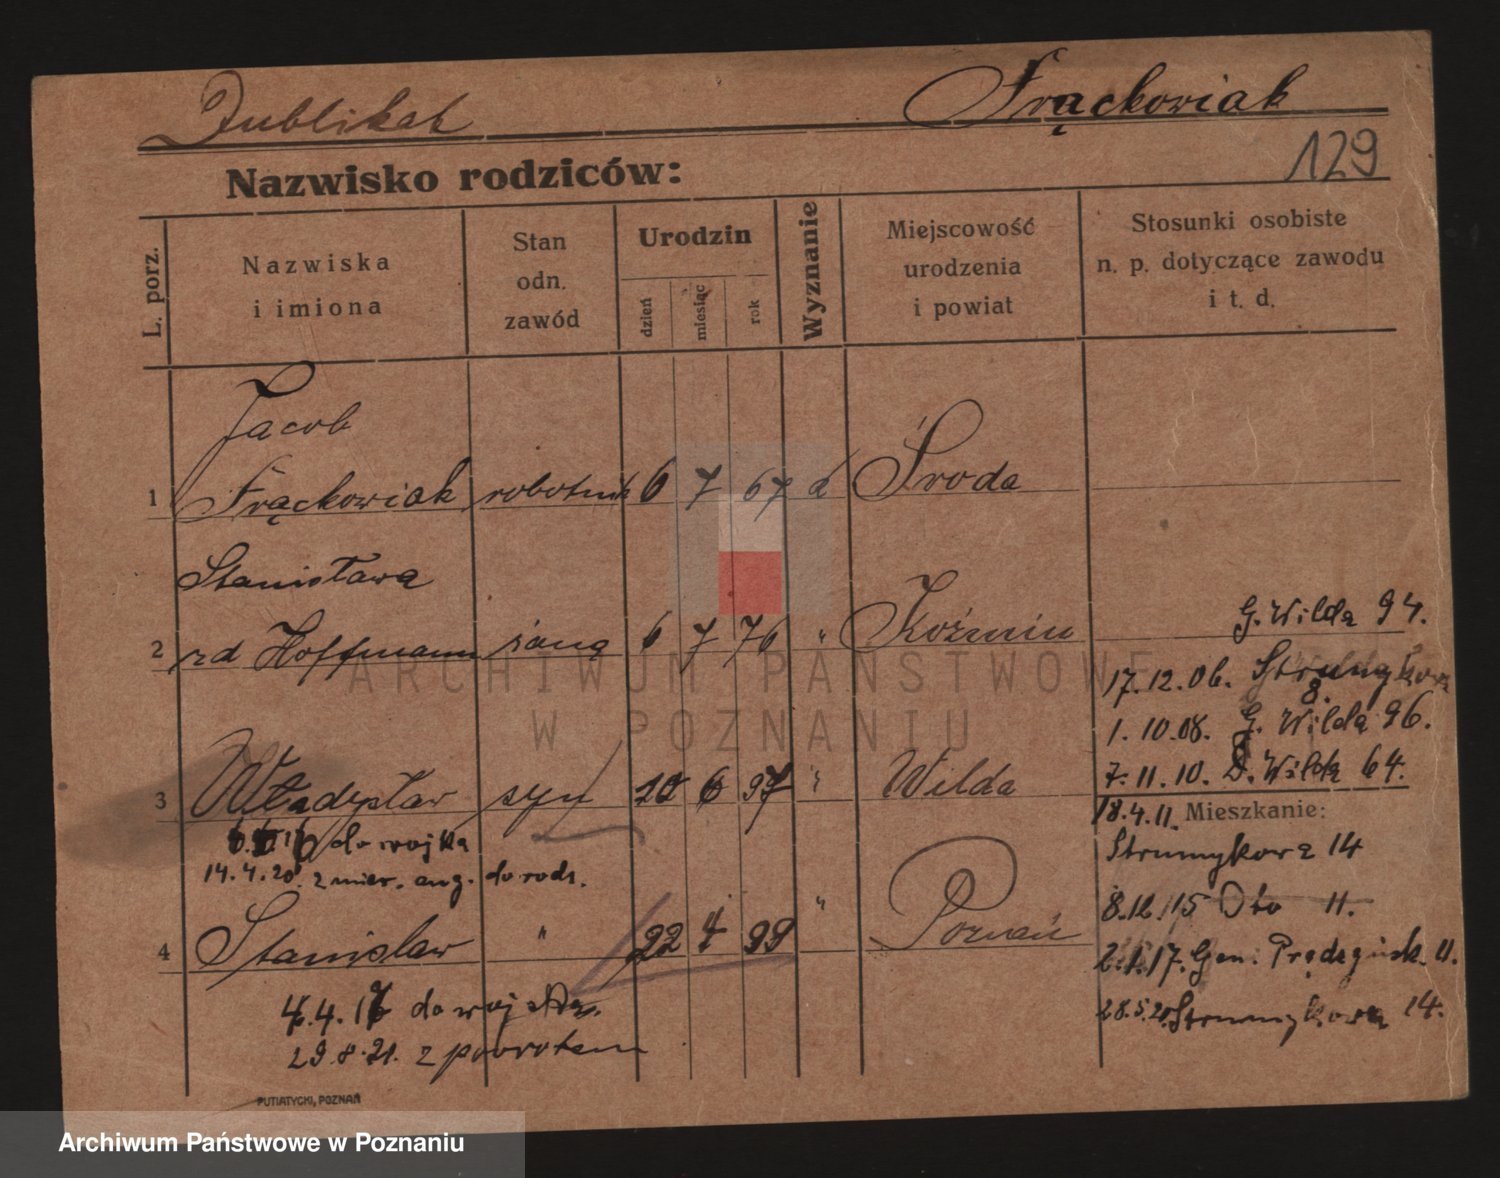 Dublikat Frąckowiak
129
Nazwisko rodziców:
L. porz.
Nazwiska
i imiona
Stan
odn.
zawód
Urodzin
dzień
miesiąc
rok
Wyznanie
Miejscowość
urodzenia
i powiat
Stosunki osobiste
n. p. dotyczące zawodu
i t. d.
Jacob
1 Frąckowiak robotnik 6 7 67 k Środa
Stanisława
2 rd Hoffmann żoną 6 7 76 " Koźmin
3 Władysław syn 6 97 " Wilda
do wojska
14.4.20 z do rodz.
4 Stanislaw " 22 4 99 " Poznań
4.4.17 do wojska.
29.8.21. z powrotem
G. Wilda 94.
17.12.06. Strumykowa
8.
1.10.08. G. Wilda 96.
7.11.10. D. Wilda 64.
18.4.11. Mieszkanie:
Strumykowa 14
8.12.15 11.
2.1.17. Gen. Prądzyńsk. 11.
28.5.20. Strumykowa 14.
PUTIATYCKI, POZNAŃ
ARCHIWUM PAŃSTWOWE
W POZNANIU
Archiwum Państwowe w Poznaniu